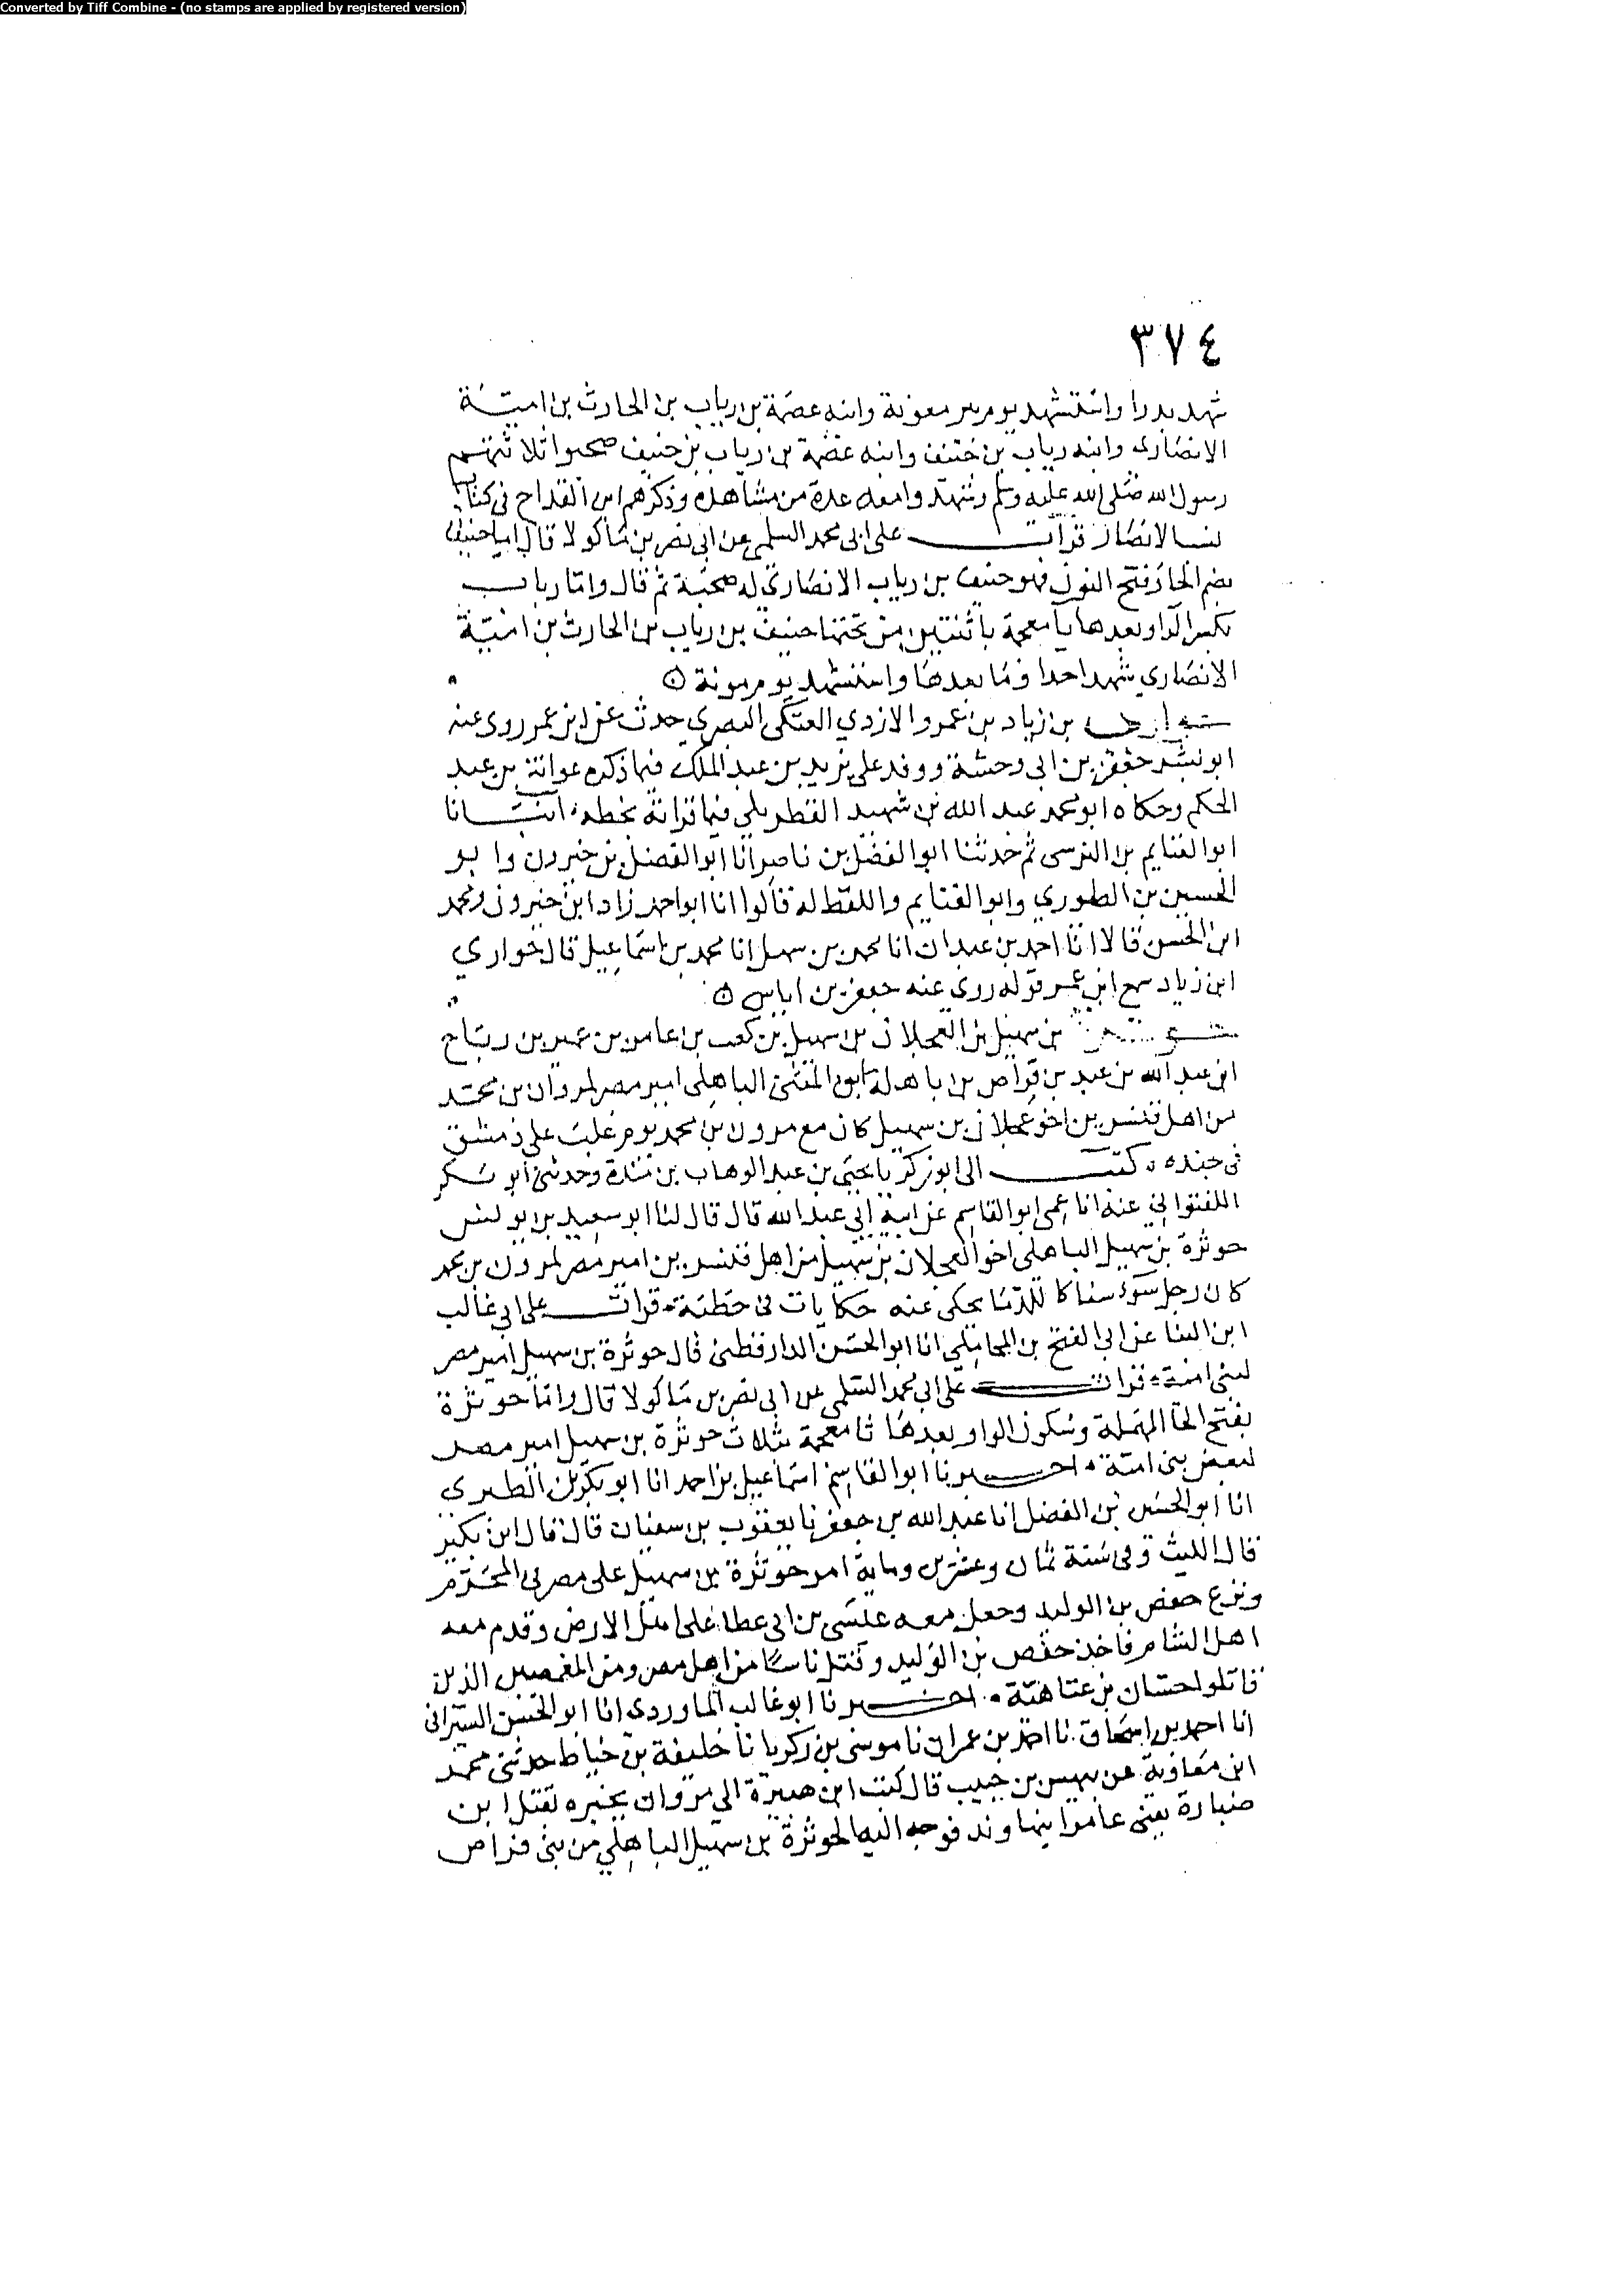 Converted by Tiff Combine - (no stamps are applied by registered version)
٣٧٤
شهد بدرا واستشهد يوم بير معونة وابنه عصمة بن رياب بن الحارث بن امية
الانصارى وابنه رياب بن حنيف وابنه عصمة بن رياب بن حنيف صحبوا ثلاثتهم
رسول الله صلى الله عليه وسلم وشهدوا معه عدة من مشاهده وذكرهم ابن القداح فى كتاب
نسب الانصار قرات على ابى محمد السلمى عن ابى نصر بن ماكولا قال اما حنيف
بضم الحا وفتح النون فهو حنيف بن رياب الانصاري له صحبة ثم قال واما رياب
بكسر الرا وبعدها يا معجمة باثنتين من تحتها حنيف بن رياب بن الحارث بن امية
الانصاري شهد احدا وما بعدها واستشهد يوم مونة
بن زياد بن عمرو الازدي العتكى البصري حدث عن ابن عمر روى عنه
ابو بشر جعفر بن ابى وحشية ووفد على يزيد بن عبد الملك فيما ذكره عوانة بن عبد
الحكم وحكاه ابو محمد عبد الله بن شهيد القطربلي فيما قراته بخطه انبانا
ابو الغنايم بن النرسى ثم حدثنا ابو الفضل بن ناصر انا ابو الفضل بن خيرون وابو
الحسين بن الطيوري وابو الغنايم واللفظ له قالوا انا ابو احمد زاد ابن خيرون ومحمد
ابن الحسن قالا انا احمد بن عبدان انا محمد بن سهل انا محمد بن اسماعيل قال حواري
ابن زياد سمع ابن عمر قوله روى عنه جعفر بن اياس
بن سهيل بن العجلان بن سهيل بن كعب بن عامر بن عمير بن رياح
ابن عبد الله بن عبد بن قراص بن باهلة ابو المثنى الباهلى امير مصر لمروان بن محمد
من اهل قنسرين اخو عجلان بن سهيل كان مع مرون بن محمد يوم غلب على دمشق
فى جنده كتب الى ابو زكريا يحيى بن عبد الوهاب بن مندة وحدثنى ابو بكر
اللفتواني عنه انا عمى ابو القاسم عن ابيه ابي عبد الله قال قال لنا ابو سعيد بن يونس
حوثرة بن سهيل الباهلى اخو العجلان بن سهيل من اهل قنسرين امير مصر لمرون بن محمد
كان رجل سوء سفاكا للدما يحكى عنه حكايات فى خطبة قرات على ابى غالب
ابن البنا عن ابى الفتح بن المحاملي انا ابو الحسن الدارقطنى قال حوثرة بن سهيل امير مصر
لبنى امية قرات على ابى محمد السلمى عن ابى نصر بن ماكولا قال واما حوثرة
بفتح الحا المهملة وسكون الواو بعدها ثا معجمة بثلاث حوثرة بن سهيل امير مصر
لبعض بنى امية اخبرنا ابو القاسم اسماعيل بن احمد انا ابو بكر بن الطبري
انا ابو الحسين بن الفضل انا عبد الله بن جعفر نا يعقوب بن سفيان قال قال ابن بكير
قال الليث وفى سنة ثمان وعشرين وماية امر حوثرة بن سهيل على مصر فى المحرم
ونزع حفص بن الوليد وجعل معه عيسى بن ابى عطا على اهل الارض وقدم معه
اهل الشام فاخذ حفص بن الوليد وقتل ناسا من اهل مصر ومن المغمصين الذين
قاتلوا حسان بن عتاهية اخبرنا ابو غالب الماوردى انا ابو الحسن السيرافى
انا احمد بن اسحاق نا احمد بن عمران نا موسى بن زكريا نا خليفة بن خياط حدثنى محمد
ابن معاوية عن بيهس بن حبيب قال كتب ابن هبيرة الى مروان يخبره بقتل ابن
ضبارة يعنى عامرا بنهاوند فوجه اليه الحوثرة بن سهيل الباهلي من بنى فراص